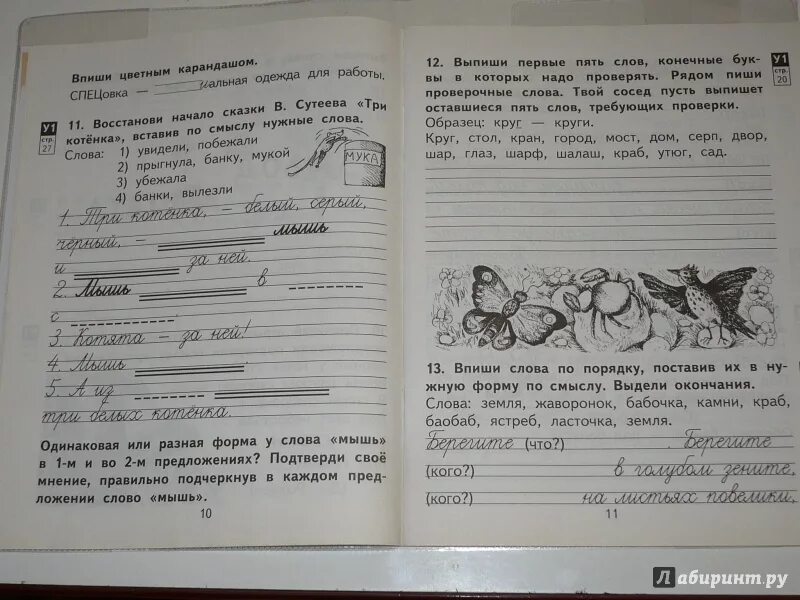 Впиши цветным карандашом.
СПЕЦовка — иальная одежда для работы.
У1
стр.
27
11. Восстанови начало сказки В. Сутеева «Три
котёнка», вставив по смыслу нужные слова.
Слова: 1) увидели, побежали
2) прыгнула, банку, мукой
3) убежала
4) банки, вылезли
МУКА
1. Три котёнка, – белый, серый,
чёрный, – мышь
и за ней.
2. Мышь в
с .
3. Котята – за ней!
4. Мышь .
5. А из
три белых котёнка.
Одинаковая или разная форма у слова «мышь»
в 1-м и во 2-м предложениях? Подтверди своё
мнение, правильно подчеркнув в каждом пред-
ложении слово «мышь».
10
12. Выпиши первые пять слов, конечные бук-
вы в которых надо проверять. Рядом пиши
проверочные слова. Твой сосед пусть выпишет
оставшиеся пять слов, требующих проверки.
У1
стр.
20
Образец: круг — круги.
Круг, стол, кран, город, мост, дом, серп, двор,
шар, глаз, шарф, шалаш, краб, утюг, сад.
13. Впиши слова по порядку, поставив их в ну-
жную форму по смыслу. Выдели окончания.
Слова: земля, жаворонок, бабочка, камни, краб,
баобаб, ястреб, ласточка, земля.
Берегите (что?) . Берегите
(кого?) в голубом зените,
(кого?) на листьях повелики,
11
Лабиринт.ру